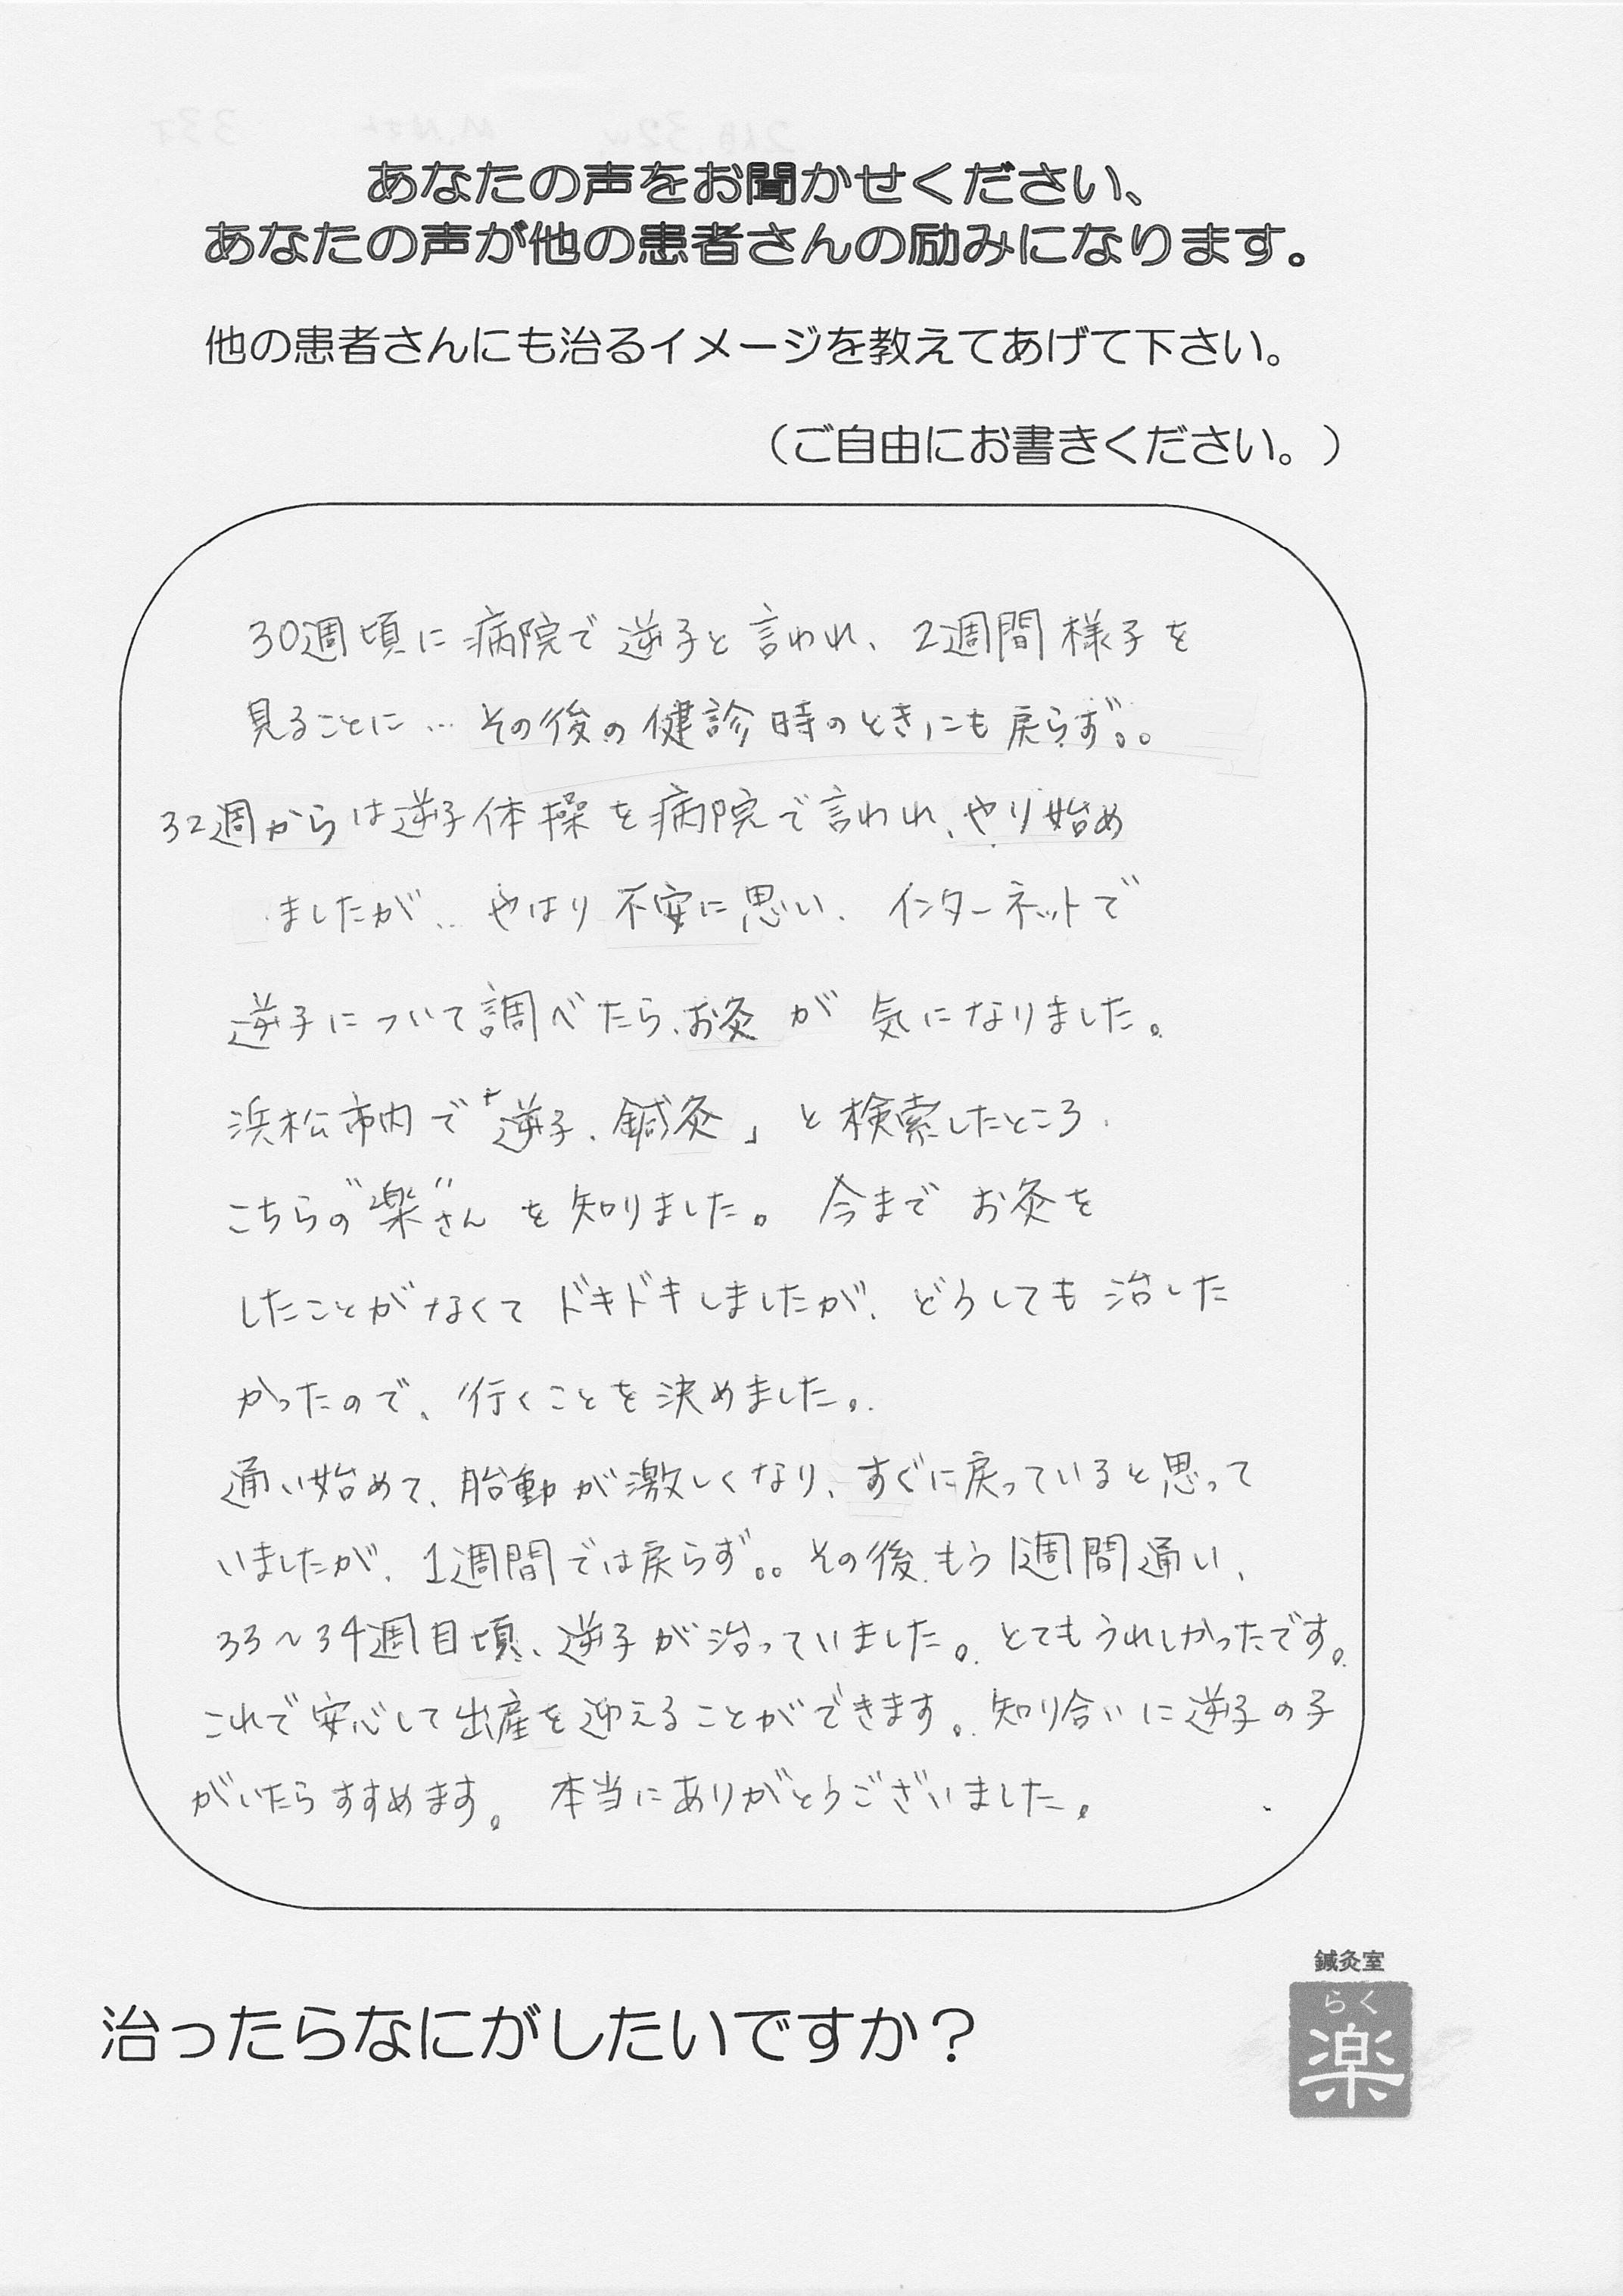 あなたの声をお聞かせください、
あなたの声が他の患者さんの励みになります。
他の患者さんにも治るイメージを教えてあげて下さい。
（ご自由にお書きください。）
30週頃に病院で逆子と言われ、2週間様子を
見ることに… その後の健診時のときにも戻らず。。
32週からは逆子体操を病院で言われ、やり始め
ましたが… やはり不安に思い、インターネットで
逆子について調べたら、お灸が気になりました。
浜松市内で「逆子、鍼灸」と検索したところ、
こちらの"楽"さんを知りました。今までお灸を
したことがなくてドキドキしましたが、どうしても治した
かったので、行くことを決めました。
通い始めて、胎動が激しくなり、すぐに戻っていると思って
いましたが、1週間では戻らず。。その後、もう1週間通い、
33～34週目頃、逆子が治っていました。とてもうれしかったです。
これで安心して出産を迎えることができます。知り合いに逆子の子
がいたらすすめます。本当にありがとうございました。
治ったらなにがしたいですか？
鍼灸室
らく
楽